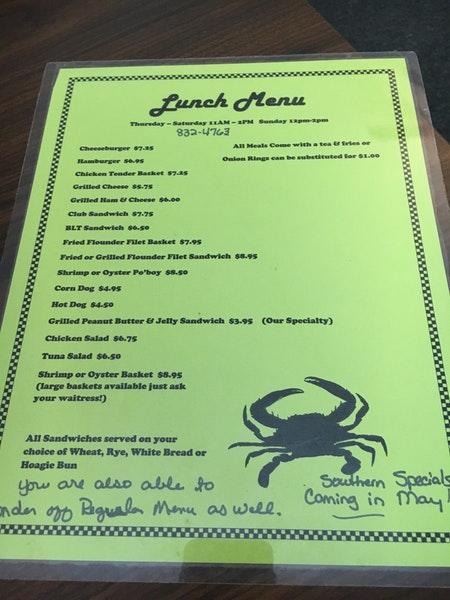 Lunch Menu
Thursday – Saturday 11AM – 2PM Sunday 12pm-2pm
832-4763
All Meals Come with a tea & fries or
Onion Rings can be substituted for $1.00
Cheeseburger $7.25
Hamburger $6.95
Chicken Tender Basket $7.25
Grilled Cheese $5.75
Grilled Ham & Cheese $6.00
Club Sandwich $7.75
BLT Sandwich $6.50
Fried Flounder Filet Basket $7.95
Fried or Grilled Flounder Filet Sandwich $8.95
Shrimp or Oyster Po'boy $8.50
Corn Dog $4.95
Hot Dog $4.50
Grilled Peanut Butter & Jelly Sandwich $3.95 (Our Specialty)
Chicken Salad $6.75
Tuna Salad $6.50
Shrimp or Oyster Basket $8.95
(large baskets available just ask
your waitress!)
All Sandwiches served on your
choice of Wheat, Rye, White Bread or
Hoagie Bun
you are also able to
order off Regular Menu as well.
Southern Specials
Coming in May!